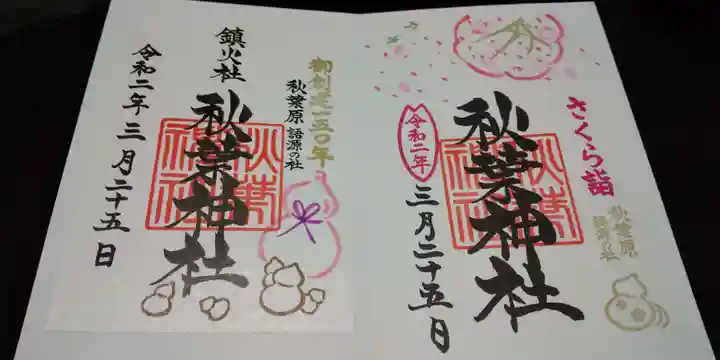 さくら詣
秋葉原
語源の社
秋葉神社
令和二年
三月二十五日
秋葉神社
御創建一五〇年
秋葉原 語源の社
鎮火社
秋葉神社
令和二年三月二十五日
秋葉神社